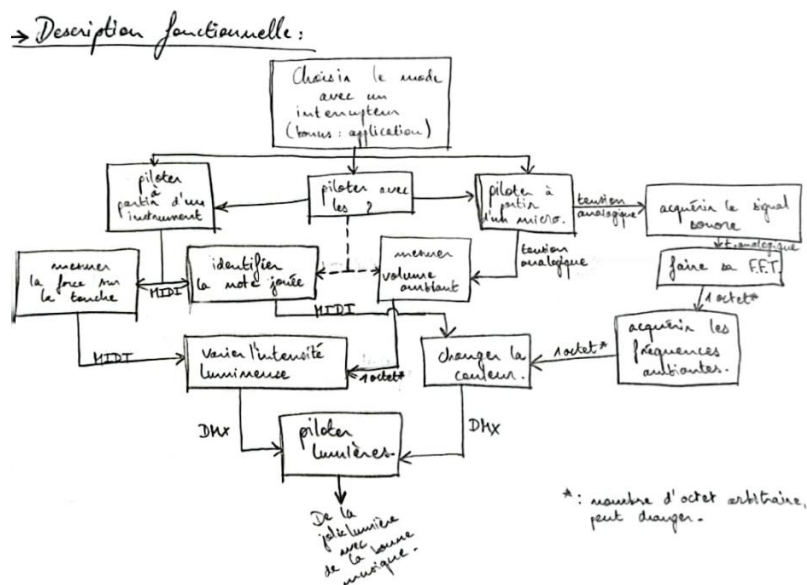 → Description fonctionnelle :
Choisir le mode
avec un
interrupteur
(bonus : application)
piloter
à
partir d'un
instrument
piloter avec
les 2
piloter à
partir
d'un micro.
tension
analogique
acquérir le signal
sonore
t. analogique
mesurer
la force sur
la touche
MIDI
identifier
la note jouée
mesurer
volume
ambiant
tension
analogique
faire sa F.F.T.
1 octet*
MIDI
MIDI
varier l'intensité
lumineuse
1 octet*
changer la
couleur.
1 octet*
acquérir les
fréquences
ambiantes.
DMX
piloter
lumières.
DMX
De la
jolie lumière
avec
de la bonne
musique.
* : nombre d'octet arbitraire,
peut changer.